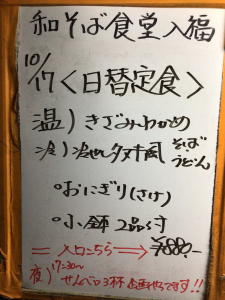 和そば食堂入福
10/17<日替定食>
温)きざみわかめ
冷)冷やしタヌキ風 そば うどん
°おにぎり(さけ)
°小鉢2品付
＝入口こちら⇒ ¥880.-
夜)17:30〜
せんべろ3杯企画やってます!!